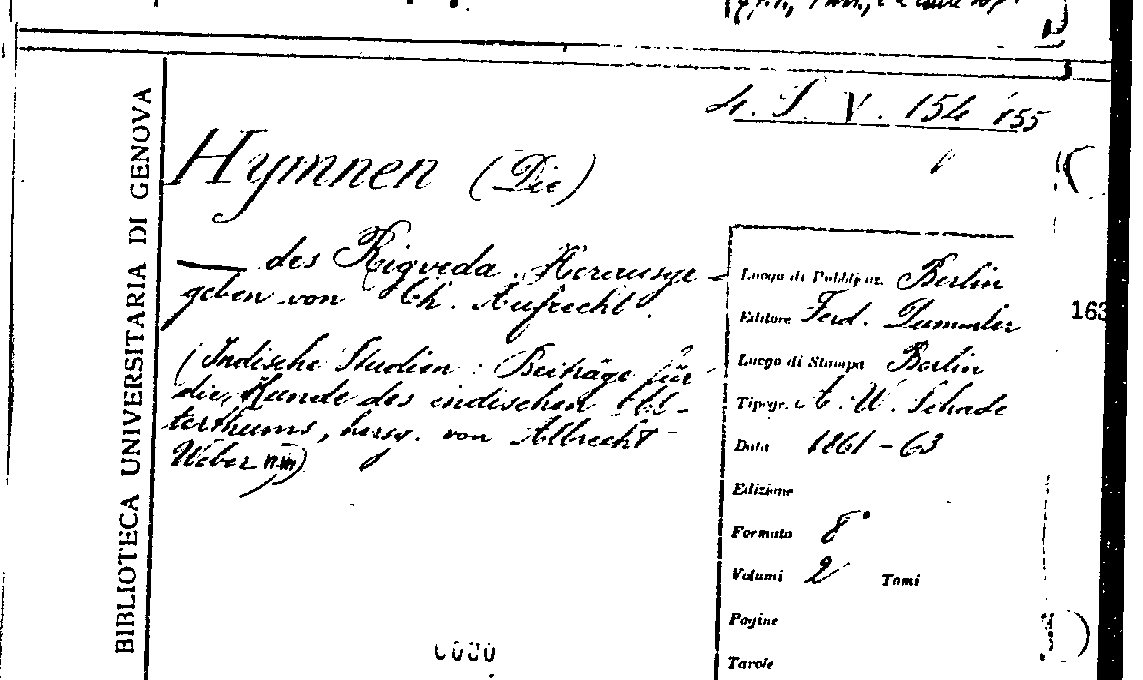 4. S. V. 154 155
BIBLIOTECA UNIVERSITARIA DI GENOVA
Hymnen (Die)
— des Rigveda. Herausge-
geben von Th. Aufrecht.
(Indische Studien: Beiträge für
die Kunde des indischen Al-
terthums, hersg. von Albrecht
Weber
Luogo di Pubblicaz. Berlin
Editore Ferd. Dummler
Luogo di Stampa Berlin
Tipogr. A. W. Schade
Data 1861-63
Edizione
Formato 8°
Volumi 2 Tomi
Pagine
Tavole
163